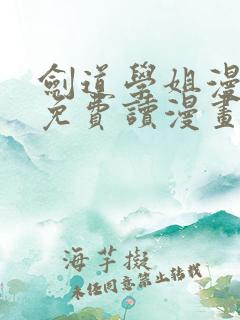 劍道學姐漫
免費讀漫畫
海芋擬
未經同意禁止轉載